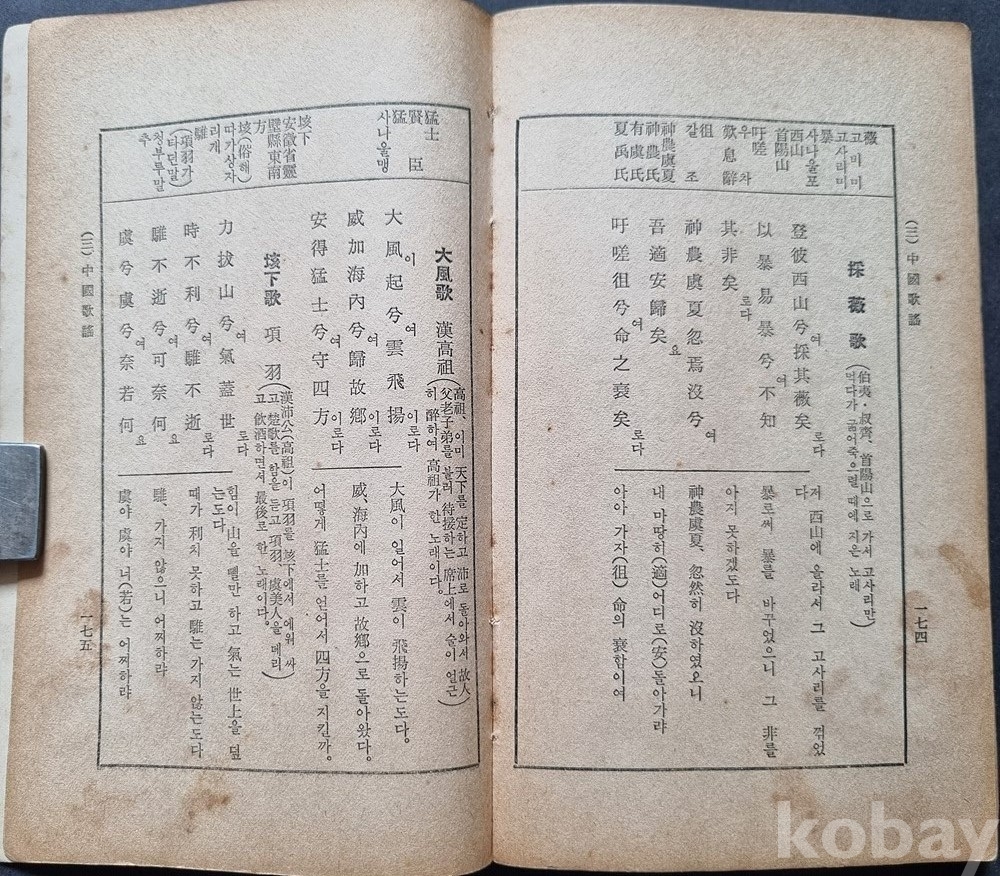 薇
고비미
고사리미
暴
사나울포
西山
首陽山
吁嗟
우차
歎息辭
徂
갈조
神農虞夏
神農氏
有虞氏
夏禹氏
(三) 中國歌謠
採薇歌 (伯夷·叔齊、首陽山으로 가서 고사리만
먹다가 굶어죽으릴 때에 지은 노래)
登彼西山兮여採其薇矣로다
以暴易暴兮여不知
其非矣로다
神農虞夏忽焉沒兮여
吾適安歸矣요
吁嗟徂兮여命之衰矣로다
저 西山에 올라서 그 고사리를 꺾었
다
暴로써 暴를 바꾸었으니 그 非를
아지 못하겠도다
神農虞夏、忽然히 沒하였으니
내 마땅히(適)어디로(安)돌아가랴
아아 가자(徂) 命의 衰함이여
一七四
猛士
賢臣
猛
사나울맹
垓下
安徽省靈
壁縣東南
方
垓(俗해)
따가상자
리개
騅
(項羽가
타던말)
청부루말
추
大風歌 漢高祖 (高祖、이미 天下를 定하고 沛로 돌아와서 故人
父老子弟를 불러 待接하는 席上에서 술이 얼근
히 醉하여 高祖가 한 노래이다。)
大風이起兮여雲飛揚이로다
威加海內兮여歸故鄕이로다
安得猛士兮여守四方이로다
大風이 일어서 雲이 飛揚하는도다。
威、海內에 加하고 故鄕으로 돌아왔다。
어떻게 猛士를 얻어서 四方을 지킨까。
垓下歌 項羽 (漢沛公(高祖)이 項羽를 垓下에서 에워 싸
고 楚歌를 함을 듣고 項羽、虞美人을 데리
고 飮酒하면서 最後로 한 노래이다。)
力拔山兮여氣蓋世로다
時不利兮여騅不逝로다
騅不逝兮여可奈何요
虞兮虞兮여奈若何요
힘이 山을 뺄만 하고 氣는 世上을 덮
는도다
때가 利치 못하고 騅는 가지 않는도다
騅、가지 않으니 어찌하랴
虞야 虞야 너(若)는 어찌하랴
(三) 中國歌謠
一七五
kobay